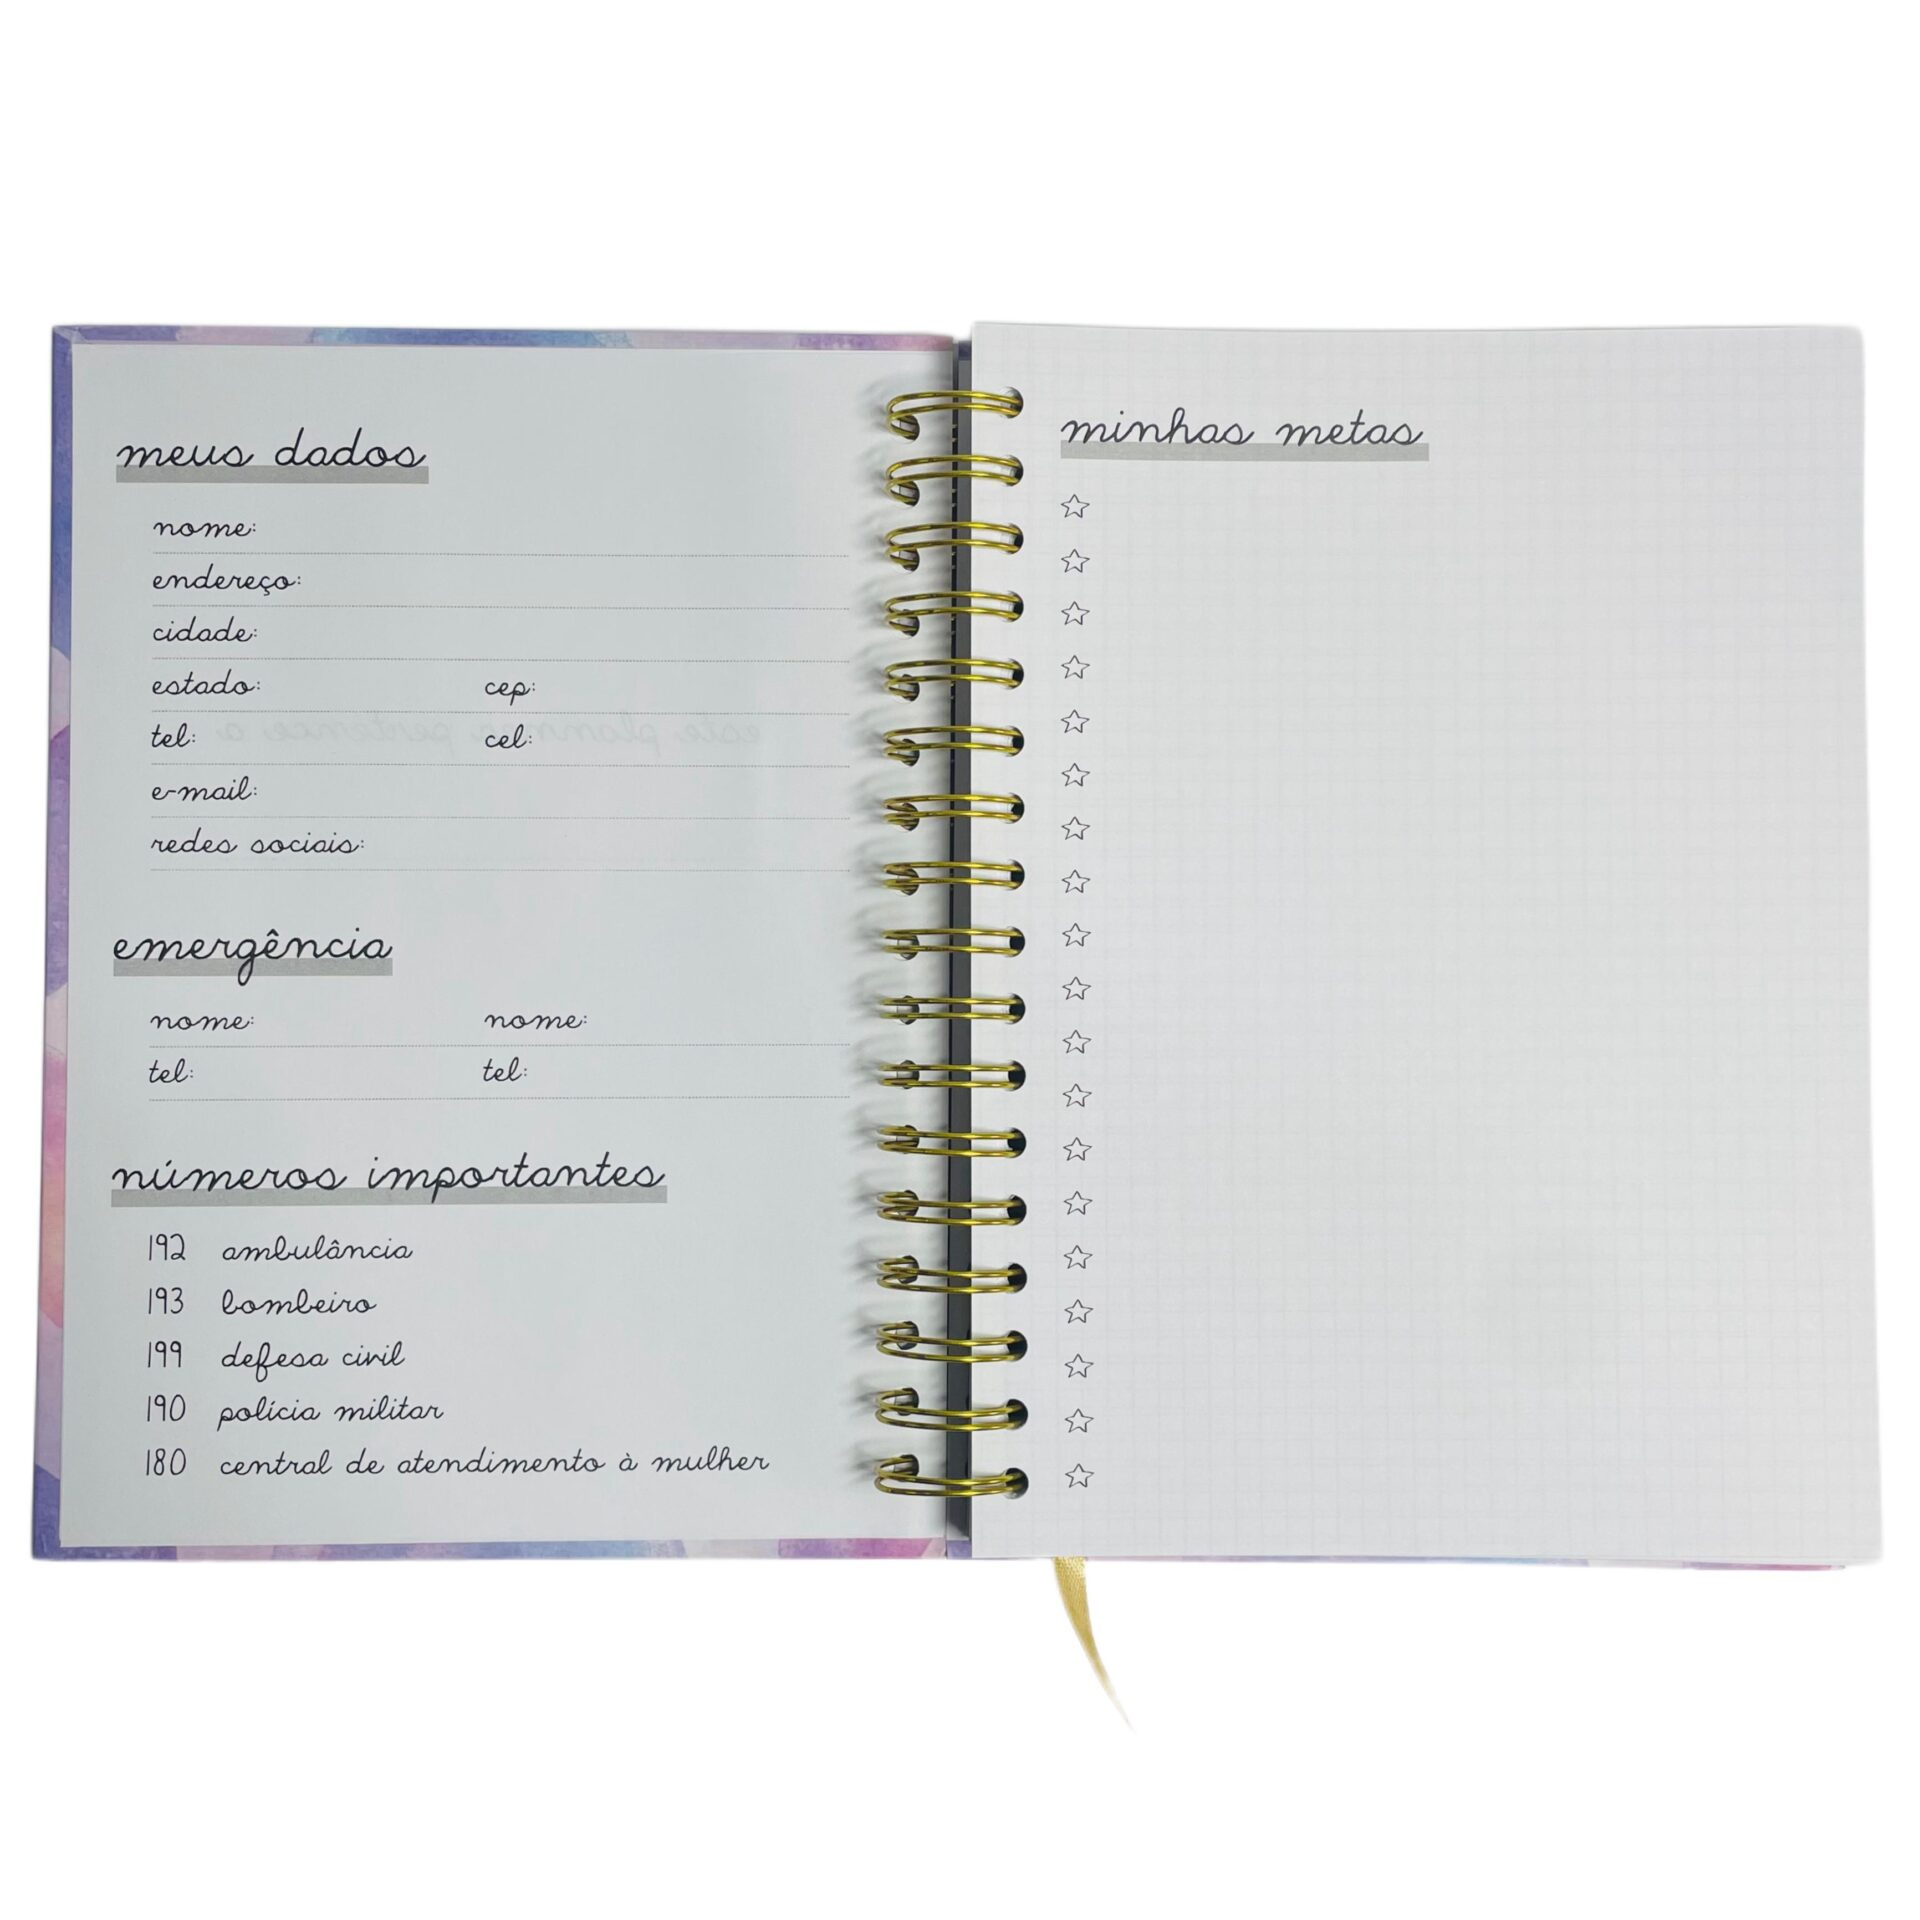 meus dados
nome:
endereço:
cidade:
estado: cep:
este planner pertence a
tel: cel:
e-mail:
redes sociais:
emergência
nome: nome:
tel: tel:
números importantes
192 ambulância
193 bombeiro
199 defesa civil
190 polícia militar
180 central de atendimento à mulher
minhas metas